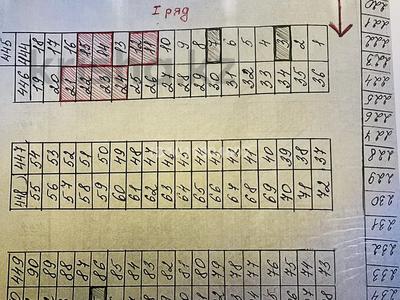 I ряд
445 444 18 17 16 15 14 13 12 11 10 9 8 7 6 5 4 3 2 1
446 19 20 21 22 23 24 25 26 27 28 29 30 31 32 33 34 35 36
447 54 53 52 51 50 49 48 47 46 45 44 43 42 41 40 39 38 37
448 55 56 57 58 59 60 61 62 63 64 65 66 67 68 69 70 71 72
449 90 89 88 87 86 85 84 83 82 81 80 79 78 77 76 75 74 73
220
221
222
223
224
225
226
227
228
229
230
231
232
233